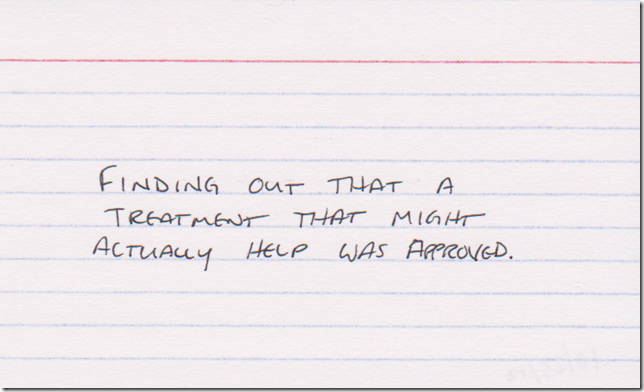 FINDING OUT THAT A
TREATMENT THAT MIGHT
ACTUALLY HELP WAS APPROVED.